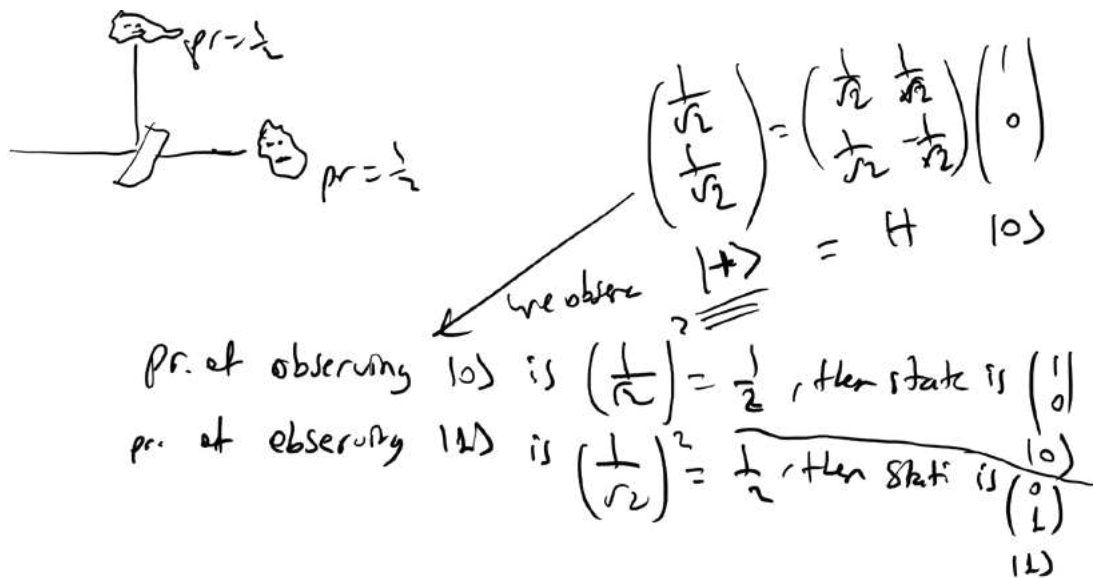 pr = 1/2
pr = 1/2
(1/√2 1/√2) = (1/√2 1/√2 1/√2 -1/√2) (1 0)
|+> = H |0>
we observe
pr. of observing |0> is (1/√2)² = 1/2, then state is (1 0)
|0>
pr. of observing |1> is (1/√2)² = 1/2, then state is (0 1)
|1>